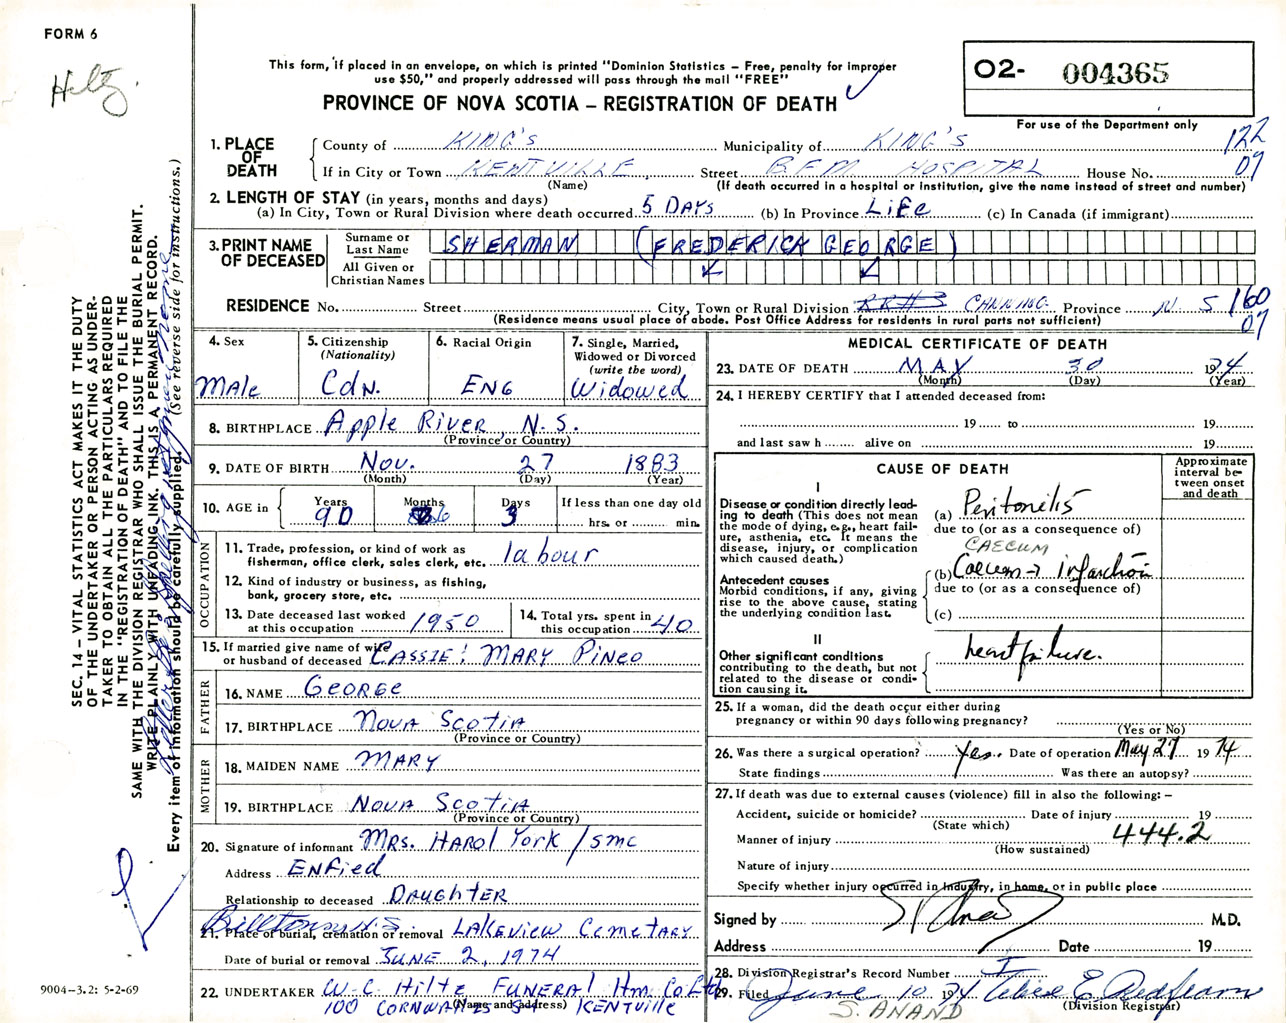 FORM 6
Hiltz.
This form, if placed in an envelope, on which is printed "Dominion Statistics – Free, penalty for improper
use $50," and properly addressed will pass through the mail "FREE"
PROVINCE OF NOVA SCOTIA – REGISTRATION OF DEATH
O2- 004365
For use of the Department only
122
07
1. PLACE OF DEATH
County of KING'S Municipality of KING'S
If in City or Town KENTVILLE, Street B.F.M. HOSPITAL House No.
(Name) (If death occurred in a hospital or institution, give the name instead of street and number)
2. LENGTH OF STAY (in years, months and days)
(a) In City, Town or Rural Division where death occurred 5 DAYS (b) In Province LIFE (c) In Canada (if immigrant)
3. PRINT NAME OF DECEASED
Surname or Last Name SHERMAN (FREDERICK GEORGE)
All Given or Christian Names
RESIDENCE No. Street City, Town or Rural Division RR#3 CANNING Province N. S 160
07
(Residence means usual place of abode. Post Office Address for residents in rural parts not sufficient)
4. Sex
Male
5. Citizenship
(Nationality)
Cdn.
6. Racial Origin
ENG
7. Single, Married,
Widowed or Divorced
(write the word)
Widowed
8. BIRTHPLACE Apple River, N.S.
(Province or Country)
9. DATE OF BIRTH Nov. 27 1883
(Month) (Day) (Year)
10. AGE in
Years Months Days If less than one day old
90 6 3 hrs. or min.
OCCUPATION
11. Trade, profession, or kind of work as
fisherman, office clerk, sales clerk, etc. labour
12. Kind of industry or business, as fishing,
bank, grocery store, etc.
13. Date deceased last worked
at this occupation 1950
14. Total yrs. spent in
this occupation 40
15. If married give name of wife
or husband of deceased CASSIE: MARY PINEO
FATHER
16. NAME GEORGE
17. BIRTHPLACE NOVA SCOTIA
(Province or Country)
MOTHER
18. MAIDEN NAME MARY
19. BIRTHPLACE NOVA SCOTIA
(Province or Country)
20. Signature of informant MRS. HAROL YORK /smc
Address ENFIED
Relationship to deceased DAUGHTER
Billtown N.S
21. Place of burial, cremation or removal LAKEVIEW CEMETARY
Date of burial or removal JUNE 2, 1974
22. UNDERTAKER W.C. Hiltz FUNERAL Hm Co Ltd
(Name and address)
100 CORNWALLIS St KENTVILLE
MEDICAL CERTIFICATE OF DEATH
23. DATE OF DEATH MAY 30 1974
(Month) (Day) (Year)
24. I HEREBY CERTIFY that I attended deceased from:
19 to 19
and last saw h alive on 19
CAUSE OF DEATH
Approximate
interval be-
tween onset
and death
I
Disease or condition directly lead-
ing to death (This does not mean
the mode of dying, e.g., heart fail-
ure, asthenia, etc. It means the
disease, injury, or complication
which caused death.)
(a) Peritonitis
due to (or as a consequence of)
CAECUM
Antecedent causes
Morbid conditions, if any, giving
rise to the above cause, stating
the underlying condition last.
(b) Caecum → infarction
due to (or as a consequence of)
(c)
II
Other significant conditions
contributing to the death, but not
related to the disease or condi-
tion causing it.
heart failure.
25. If a woman, did the death occur either during
pregnancy or within 90 days following pregnancy?
(Yes or No)
26. Was there a surgical operation? yes. Date of operation May 27 1974
State findings Was there an autopsy?
27. If death was due to external causes (violence) fill in also the following: –
Accident, suicide or homicide? Date of injury 19
(State which)
444.2
Manner of injury
(How sustained)
Nature of injury
Specify whether injury occurred in industry, in home, or in public place
Signed by M.D.
Address Date 19
28. Division Registrar's Record Number
29. Filed June 10 1974
(Division Registrar)
S. ANAND
SEC. 14 – VITAL STATISTICS ACT MAKES IT THE DUTY
OF THE UNDERTAKER OR PERSON ACTING AS UNDER-
TAKER TO OBTAIN ALL THE PARTICULARS REQUIRED
IN THE "REGISTRATION OF DEATH" AND TO FILE THE
SAME WITH THE DIVISION REGISTRAR WHO SHALL ISSUE THE BURIAL PERMIT.
WRITE PLAINLY WITH UNFADING INK. THIS IS A PERMANENT RECORD.
Every item of information should be carefully supplied. (See reverse side for instructions.)
9004–3.2: 5-2-69